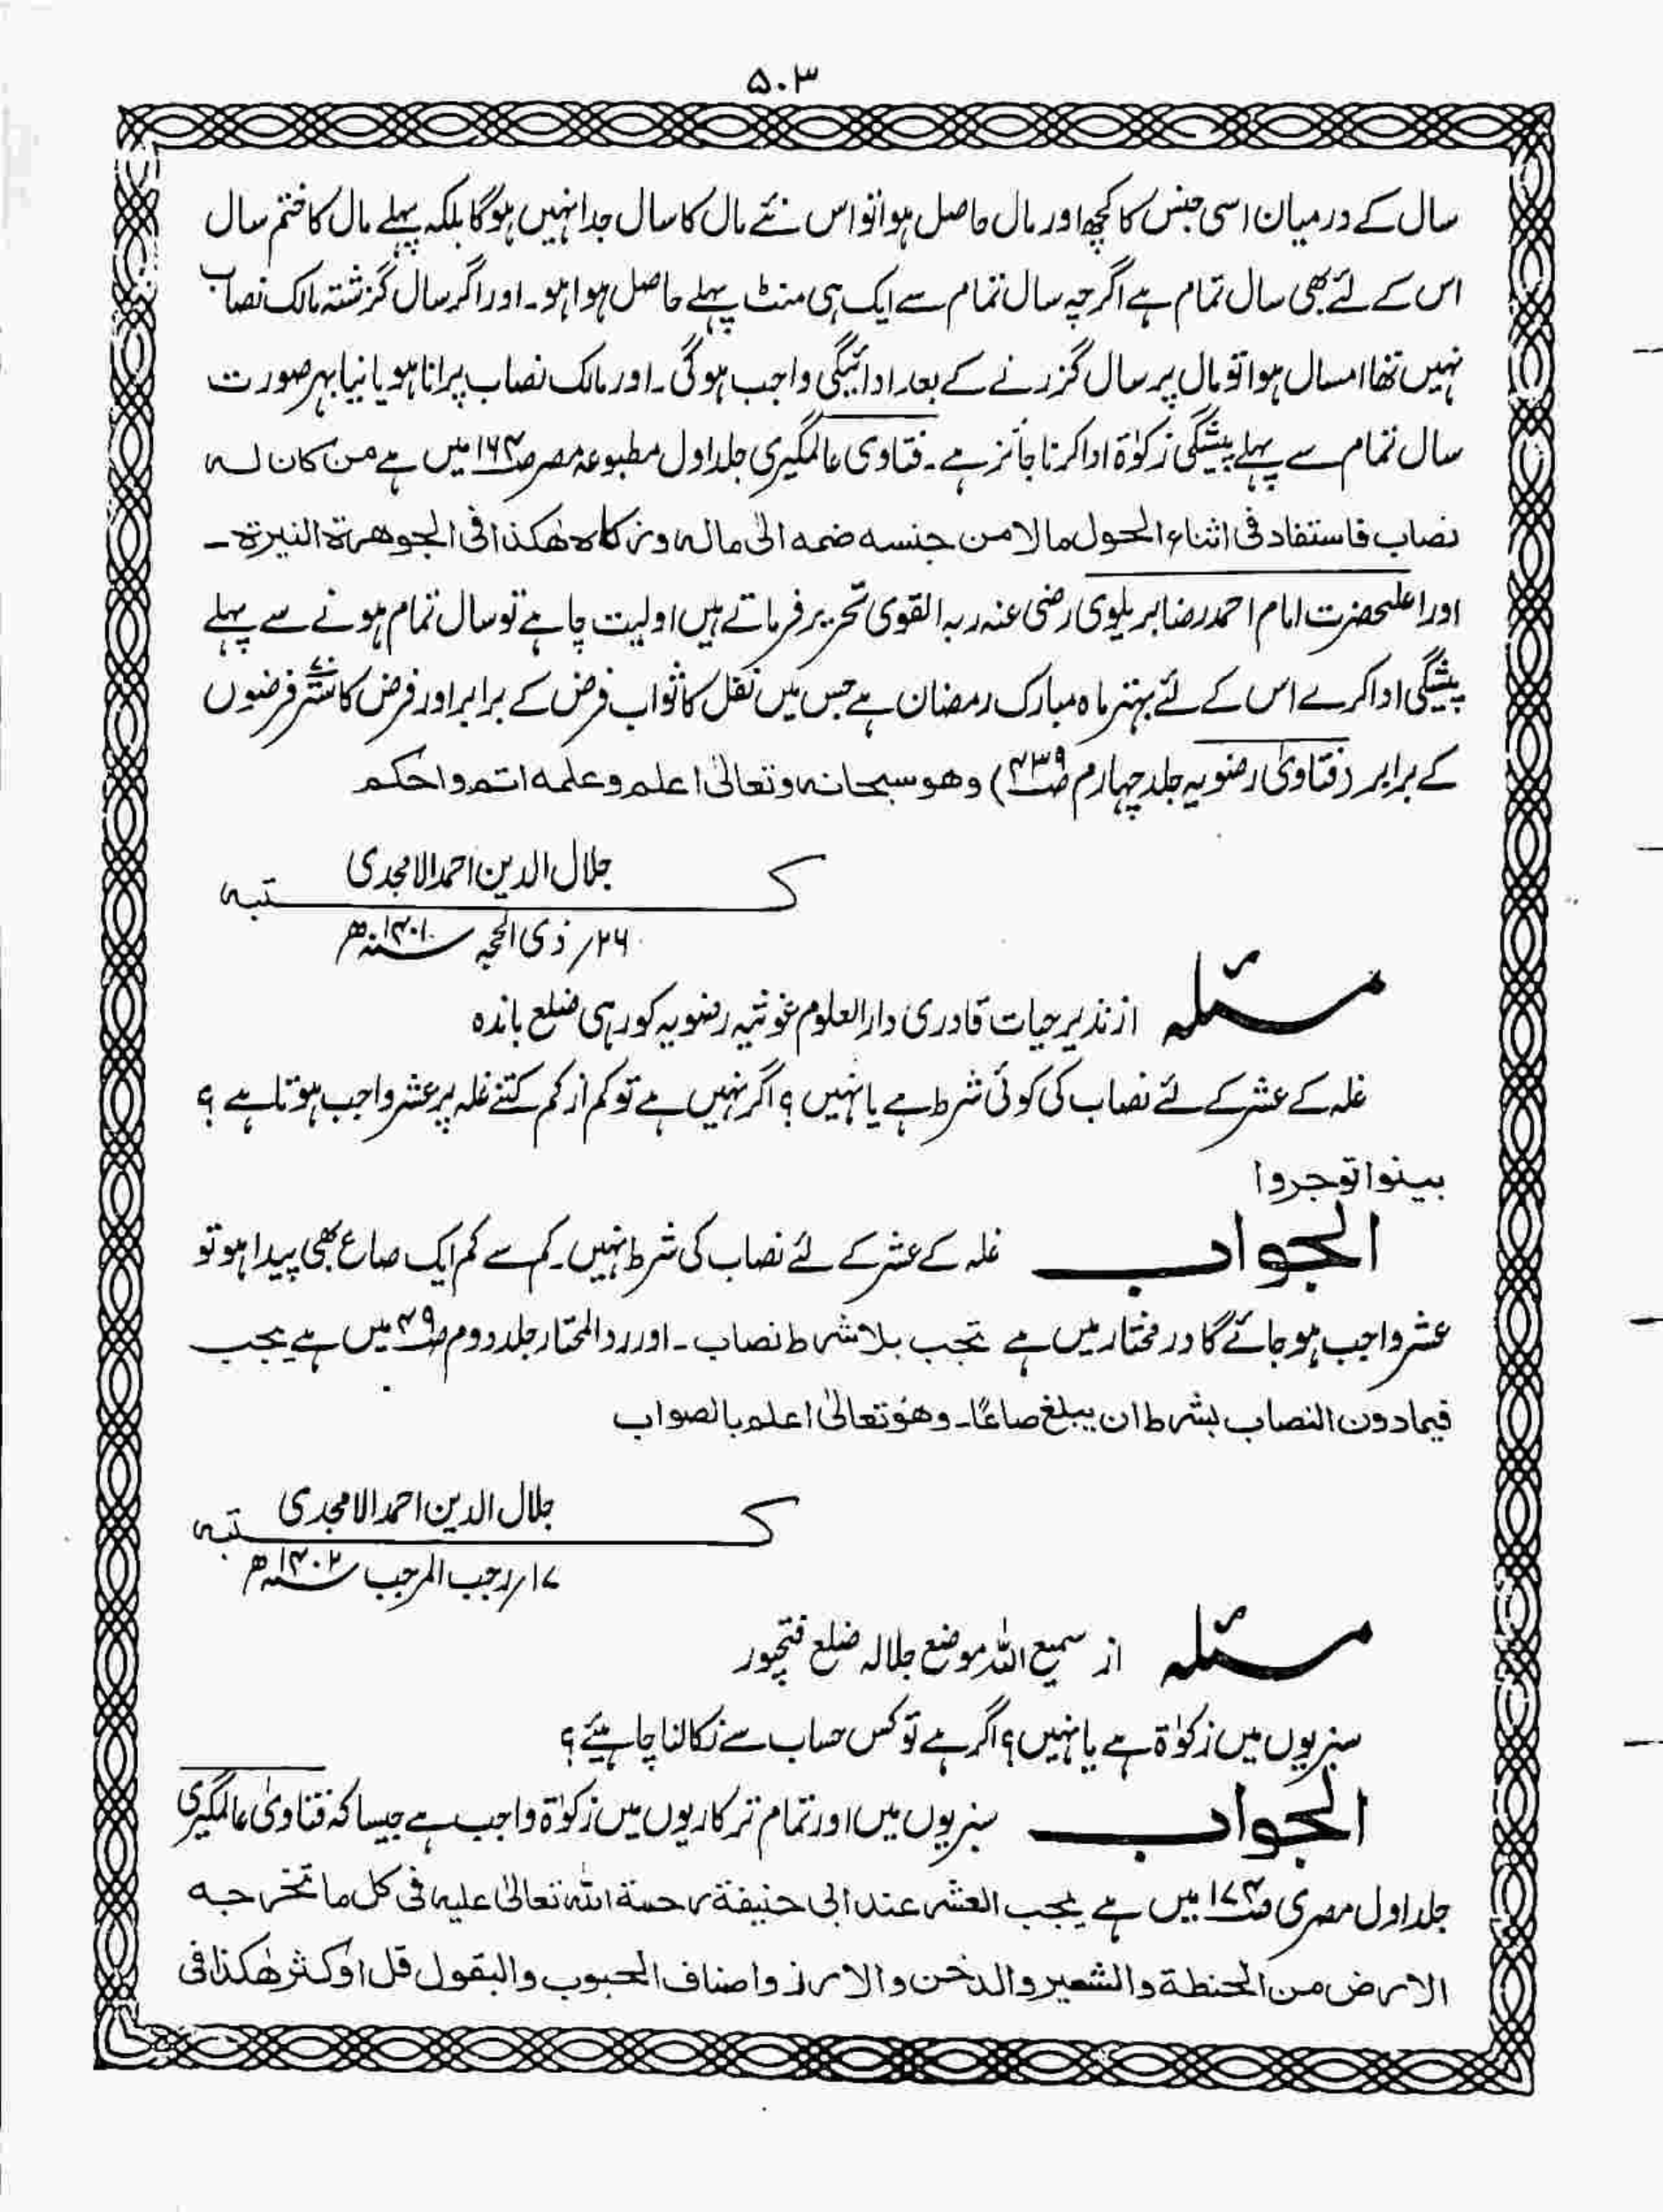 ۵۰۳
سال کے درمیان اسی جنس کا کچھ اور مال حاصل ہوا تو اس نئے مال کا سال جدا نہیں ہوگا بلکہ پہلے مال کا ختم سال
اس کے لئے بھی سال تمام ہے اگرچہ سال تمام سے ایک ہی منٹ پہلے حاصل ہوا ہو۔ اور اگر سال گزشتہ مالک نصاب
نہیں تھا امسال ہوا تو مال پر سال گزرنے کے بعد ادائیگی واجب ہوگی۔ اور مالک نصاب پرانا ہو یا نیا بہر صورت
سال تمام سے پہلے پیشگی زکوٰۃ ادا کرنا جائز ہے۔ فتاوی عالمگیری جلد اول مطبوعہ مصر ص۱۶۴ میں ہے من کان لہ
نصاب فاستفاد فی اثناء الحول مالا من جنسہ ضمہ الیٰ مالہ و زکاہ ھٰکذا فی الجوھرۃ النیرۃ۔
اور اعلیحضرت امام احمد رضا بریلوی رضی عنہ ربہ القوی تحریر فرماتے ہیں اولیت چاہے تو سال تمام ہونے سے پہلے
پیشگی ادا کرے اس کے لئے بہتر ماہ مبارک رمضان ہے جس میں نفل کا ثواب فرض کے برابر اور فرض کا ستّر فرضوں
کے برابر (فتاویٰ رضویہ جلد چہارم ص۴۳۹) وھو سبحانہ وتعالیٰ اعلم وعلمہ اتم واحکم
کتبہ جلال الدین احمد الامجدی
۲۶/ ذی الحجہ سنہ ۱۴۰۱ھ
مسئلہ از نذیر حیات قادری دارالعلوم غوثیہ رضویہ کورہی ضلع باندہ
غلہ کے عشر کے لئے نصاب کی کوئی شرط ہے یا نہیں؟ اگر نہیں ہے تو کم از کم کتنے غلہ پر عشر واجب ہوتا ہے؟
بینوا توجروا
الجواب غلہ کے عشر کے لئے نصاب کی شرط نہیں۔ کم سے کم ایک صاع بھی پیدا ہو تو
عشر واجب ہو جائے گا در مختار میں ہے تجب بلا شرط نصاب۔ اور رد المحتار جلد دوم ص۴۹ میں ہے یجب
فیما دون النصاب بشرط ان یبلغ صاعًا۔ وھو تعالیٰ اعلم بالصواب
کتبہ جلال الدین احمد الامجدی
۱۷/ رجب المرجب سنہ ۱۴۰۲ھ
مسئلہ از سمیع اللہ موضع جلالہ ضلع فتحپور
سبزیوں میں زکوٰۃ ہے یا نہیں؟ اگر ہے تو کس حساب سے نکالنا چاہیئے؟
الجواب سبزیوں میں اور تمام ترکاریوں میں زکوٰۃ واجب ہے جیسا کہ فتاویٰ عالمگیری
جلد اول مصری ص۱۷۴ میں ہے یجب العشر عند ابی حنیفۃ رحمۃ اللہ تعالیٰ علیہ فی کل ما تخرجہ
الارض من الحنطۃ والشعیر والدخن والارز واصناف الحبوب والبقول قل اوکثر ھٰکذا فی